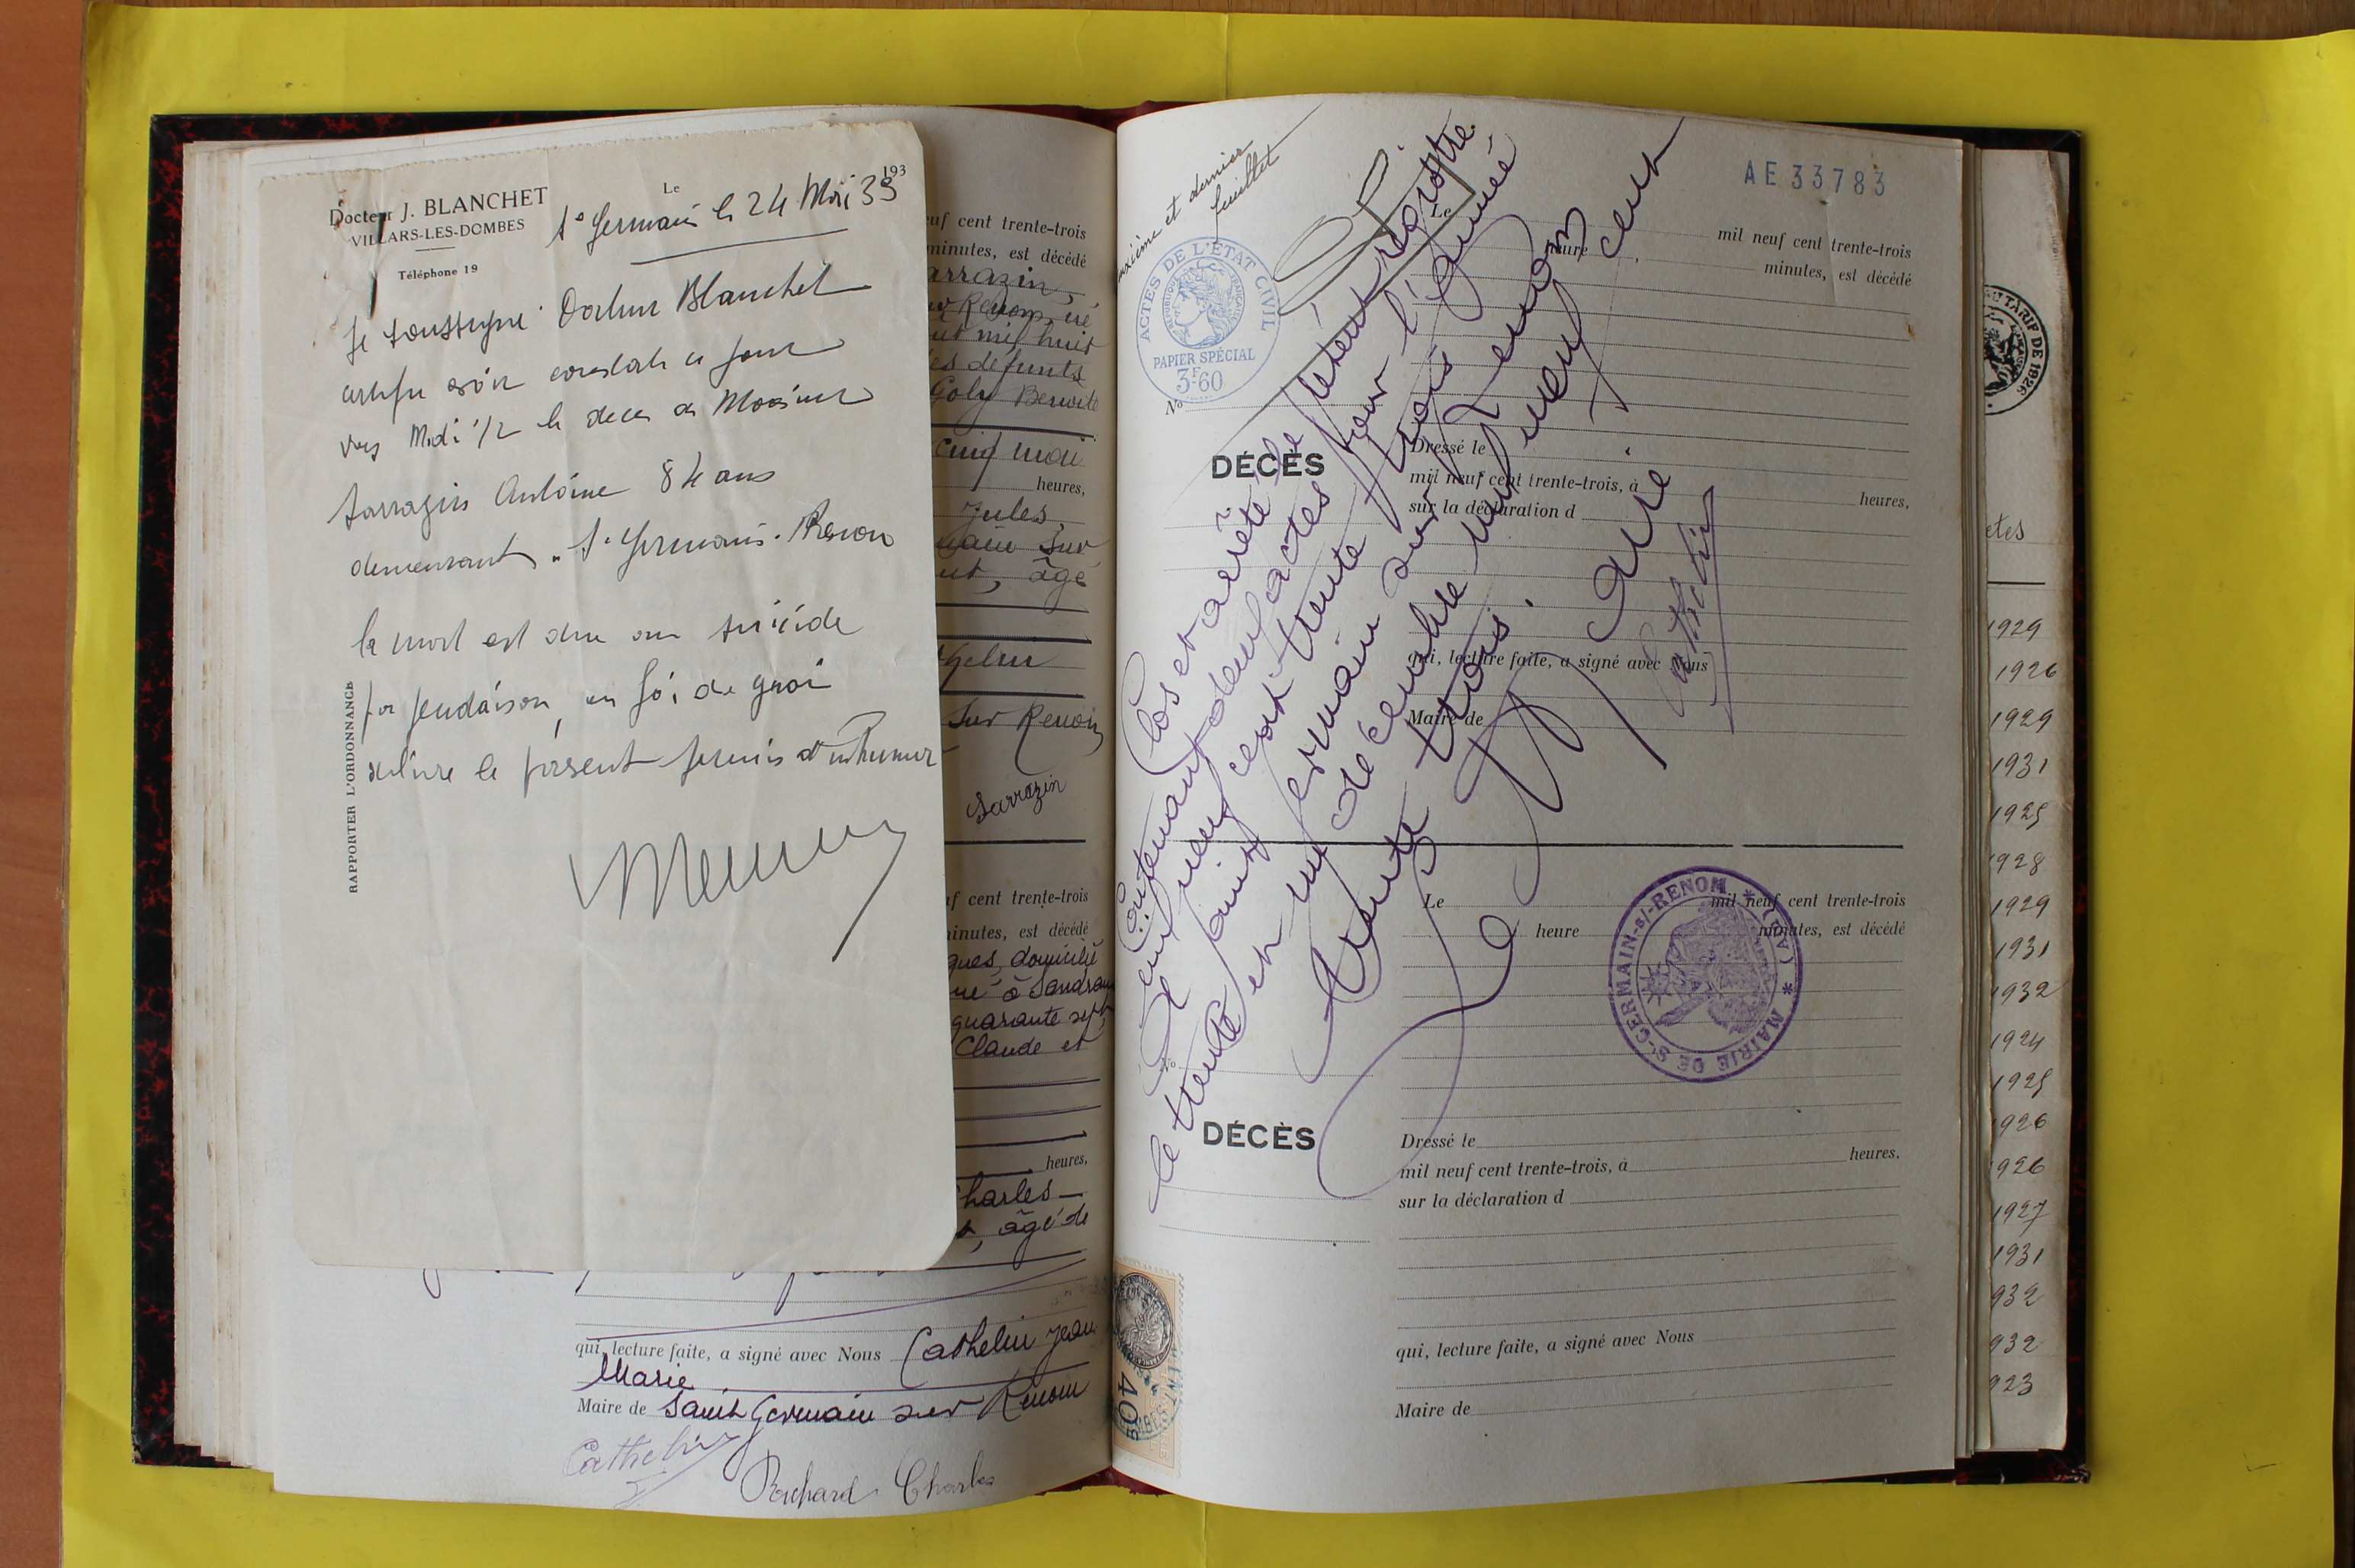 Docteur J. BLANCHET
VILLARS-LES-DOMBES
Téléphone 19
Le 193
St Germain le 24 Mai 33
Je soussigné Docteur Blanchet
certifie avoir constaté ce jour
vers Midi 1/2 le deces de Monsieur
Sarrazin Antoine 84 ans
demeurant à St Germain-Renon
la mort est due au suicide
par pendaison, en foi de quoi
délivre le présent permis d'inhumer
RAPPORTER L'ORDONNANCE
neuf cent trente-trois
minutes, est décédé
arrazin,
ur Renom, né
nt mil huit
es défunts
Goly Benoite
cinq mai
heures,
Jules,
main sur
nt, âgé
thelin
sur Renom
Sarrazin
uf cent trente-trois
minutes, est décédé
ques, domicilié
né à Sandrans
quarante sept,
Claude et
heures,
harles
, âgé de
qui, lecture faite, a signé avec Nous Cathelin Jean
Marie
Maire de Saint Germain sur Renom
Cathelin
Richard Charles
uxième et dernier
feuillet
AE 33783
ACTES DE L'ÉTAT CIVIL
RÉPUBLIQUE FRANÇAISE
PAPIER SPÉCIAL
3F.60
No
DÉCÈS
Le
mil neuf cent trente-trois
heure
minutes, est décédé
Dressé le
mil neuf cent trente-trois, à heures,
sur la déclaration d
qui, lecture faite, a signé avec Nous
Maire de
Clos et arrêté le présent registre
Contenant deux actes pour l'année
mil neuf cent trente trois
Saint Germain sur Renom
le trente et un décembre mil neuf cent
trente trois.
Le Maire
Cathelin
MAIRIE DE St GERMAIN-s/-RENOM * (AIN) *
Le
mil neuf cent trente-trois
heure
minutes, est décédé
No
DÉCÈS
Dressé le
mil neuf cent trente-trois, à heures,
sur la déclaration d
qui, lecture faite, a signé avec Nous
Maire de
40
TARIF DE 1926
ctes
1929
1926
1929
1931
1925
1928
1929
1931
1932
1924
1925
1926
1926
1927
1931
932
932
923